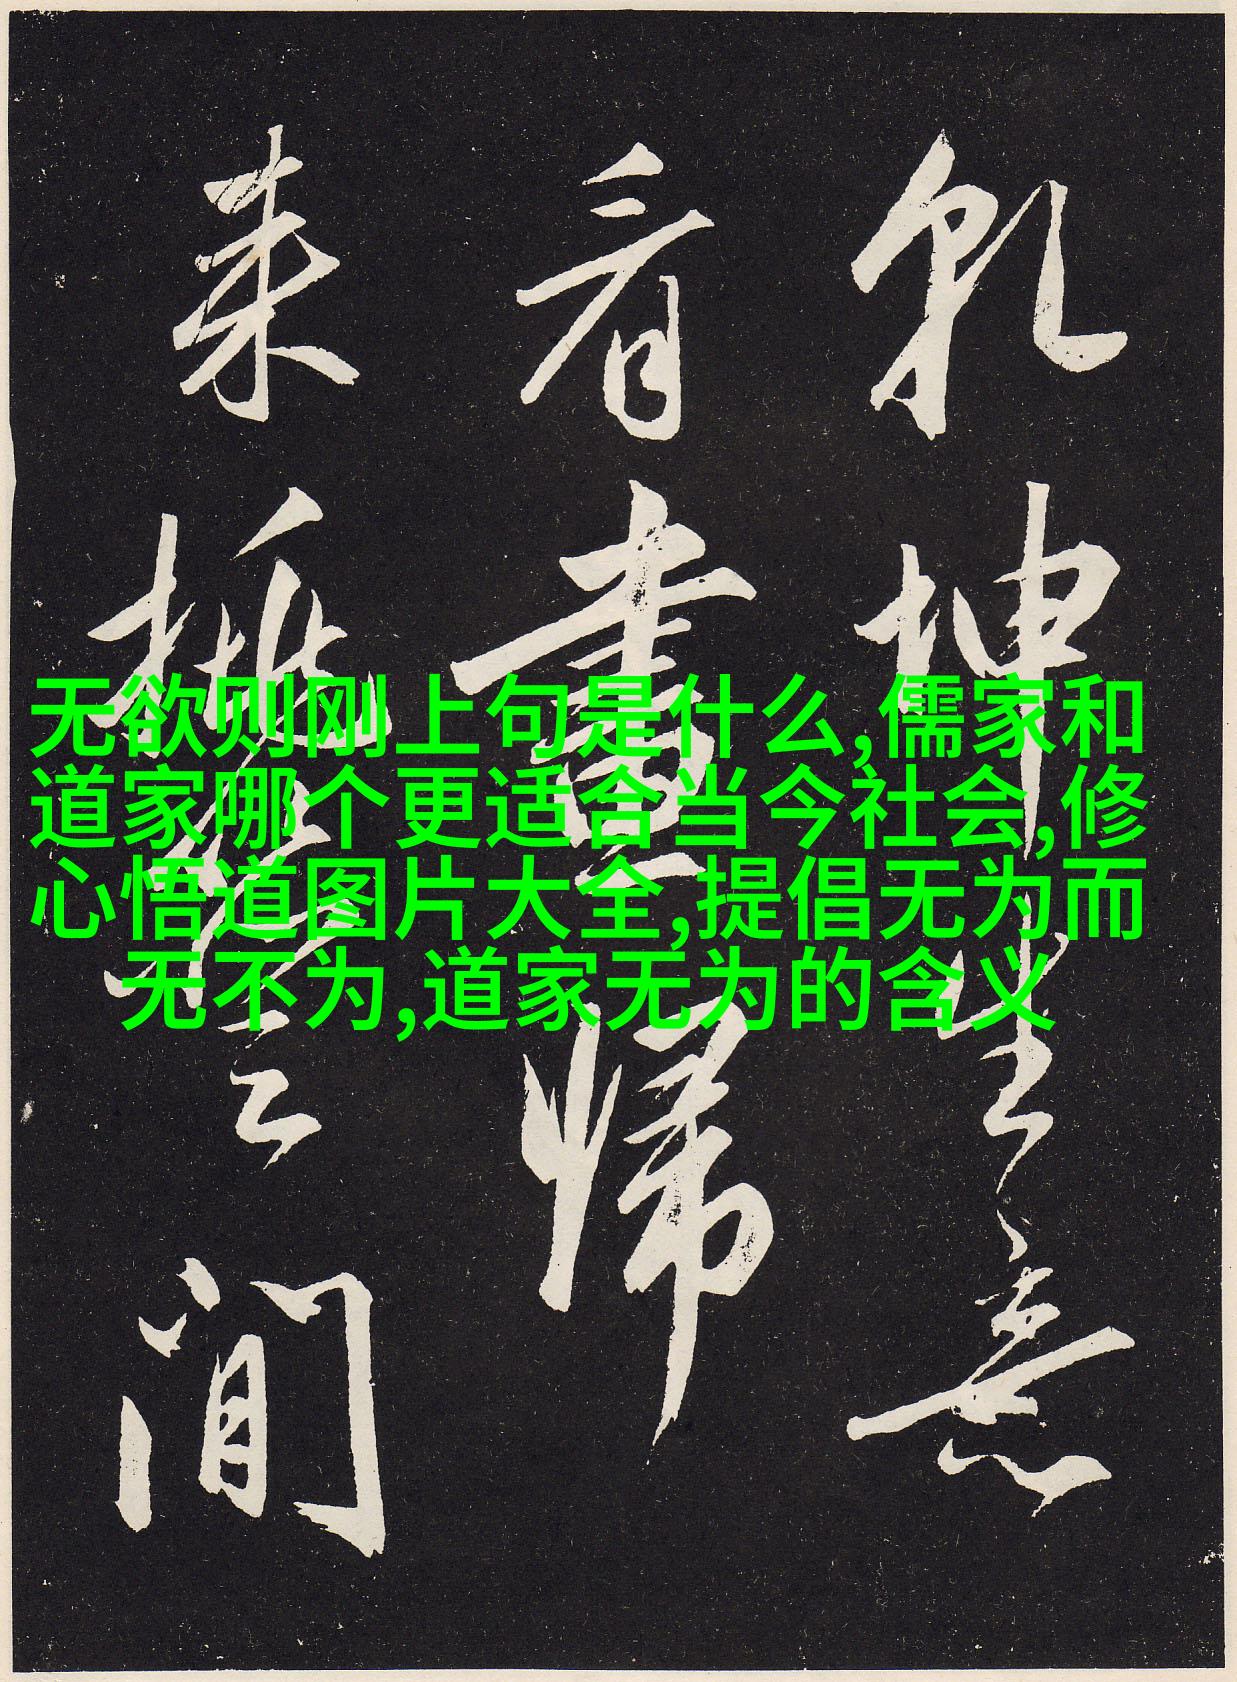 乾坤生意
看畫歸
来 間
无欲则刚上句是什么,儒家和
道家哪个更适合当今社会,修
心悟道图片大全,提倡无为而
无不为,道家无为的含义